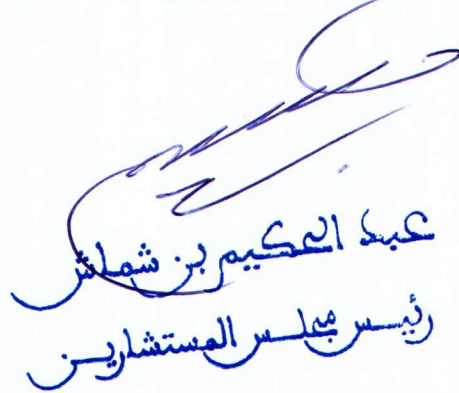 عبد الحكيم بن شملش
رئيس مجلس المستشارين